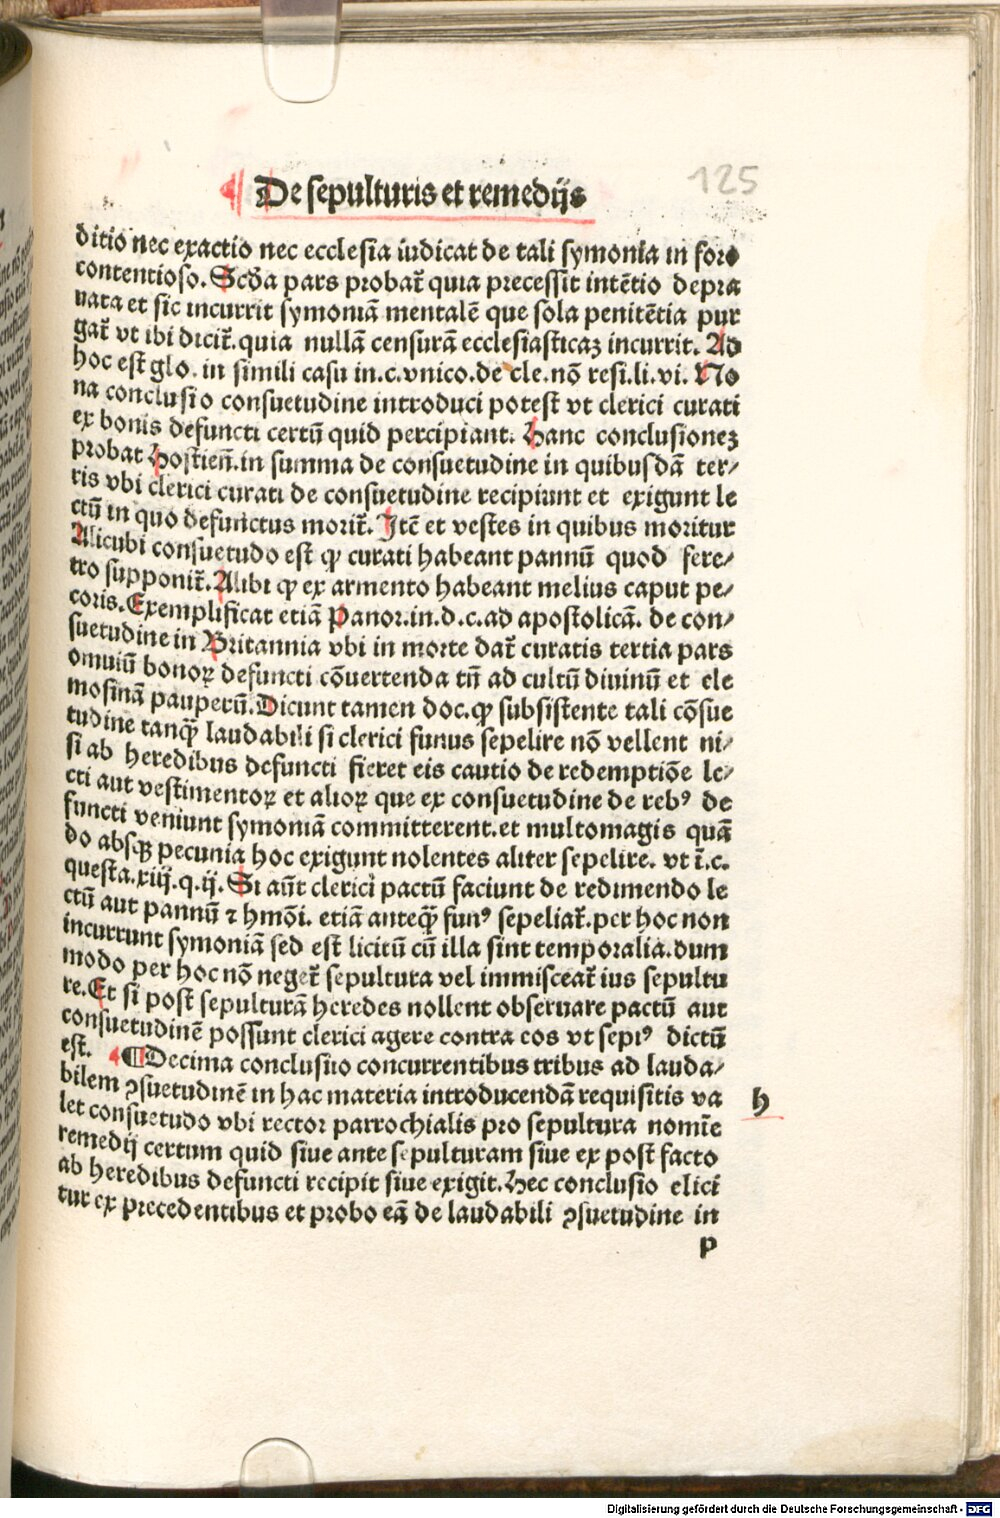 125
¶ De sepulturis et remedijs
ditio nec exactio nec ecclesia iudicat de tali symonia in foro
contentioso. Scđa pars probat̃ quia precessit intẽtio depra
uata et sic incurrit symoniã mentalẽ que sola penitẽtia pur
gat̃ vt ibi dicit̃. quia nullã censurã ecclesiasticaꝫ incurrit. Ad
hoc est glo. in simili casu in.c.vnico.de cle.nõ resi.li.vi. No
na conclusio consuetudine introduci potest vt clerici curati
ex bonis defuncti certũ quid percipiant. Hanc conclusioneꝫ
probat Hostieñ.in summa de consuetudine in quibusdã ter⸗
ris vbi clerici curati de consuetudine recipiunt et exigunt le
ctũ in quo defunctus morit̃. Itẽ et vestes in quibus moritur
Alicubi consuetudo est ꝙ curati habeant pannũ quod fere⸗
tro supponit̃. Alibi ꝙ ex armento habeant melius caput pe⸗
coris. Exemplificat etiã Panor.in.d.c.ad apostolicã. de con⸗
suetudine in Britannia vbi in morte dat̃ curatis tertia pars
omniũ bonoꝝ defuncti cõuertenda tñ ad cultũ diuinũ et ele
mosinã pauperũ. Dicunt tamen doc.ꝙ subsistente tali cõsue
tudine tanꝙ̃ laudabili si clerici funus sepelire nõ vellent ni⸗
si ab heredibus defuncti fieret eis cautio de redemptiõe le⸗
cti aut vestimentoꝝ et alioꝝ que ex consuetudine de rebꝰ de
functi veniunt symoniã committerent.et multomagis quã
do absqꝫ pecunia hoc exigunt nolentes aliter sepelire. vt ĩ.c.
questa.xiij.q.ij. Si aũt clerici pactũ faciunt de redimendo le
ctũ aut pannũ ⁊ hmõi. etiã anteꝙ̃ funꝰ sepeliat̃.per hoc non
incurrunt symoniã sed est licitũ cũ illa sint temporalia.dum
modo per hoc nõ neget̃ sepultura vel immisceat̃ ius sepultu
re. Et si post sepulturã heredes nollent obseruare pactũ aut
consuetudinẽ possunt clerici agere contra eos vt sepiꝰ dictũ
est. ¶ Decima conclusiio concurrentibus tribus ad lauda⸗
bilem ꝯsuetudinẽ in hac materia introducendã requisitis va
h
let consuetudo vbi rector parrochialis pro sepultura nomĩe
remedij certum quid siue ante sepulturam siue ex post facto
ab heredibus defuncti recipit siue exigit. Hec conclusio elici
tur ex precedentibus et probo eã de laudabili ꝯsuetudine in
p
Digitalisierung gefördert durch die Deutsche Forschungsgemeinschaft - DFG